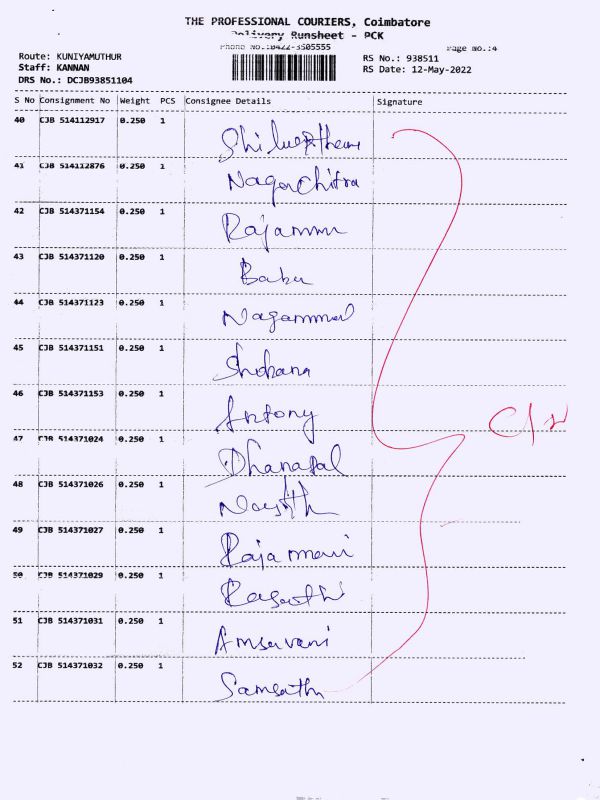 THE PROFESSIONAL COURIERS, Coimbatore
Delivery Runsheet - PCK
Phone No.:0422-3505555
Page No.:4
Route: KUNIYAMUTHUR
RS No.: 938511
Staff: KANNAN
RS Date: 12-May-2022
DRS No.: DCJB93851104
S No Consignment No Weight PCS Consignee Details Signature
40 CJB 514112917 0.250 1
41 CJB 514112876 0.250 1 NagarChitra
42 CJB 514371154 0.250 1 Rajammu
43 CJB 514371120 0.250 1 Babu
44 CJB 514371123 0.250 1 Nagammal
45 CJB 514371151 0.250 1 Shobana
46 CJB 514371153 0.250 1 Antony
47 CJB 514371024 0.250 1 Dhanapal
48 CJB 514371026 0.250 1
49 CJB 514371027 0.250 1 Rajamani
50 CJB 514371029 0.250 1
51 CJB 514371031 0.250 1 Amsavani
52 CJB 514371032 0.250 1